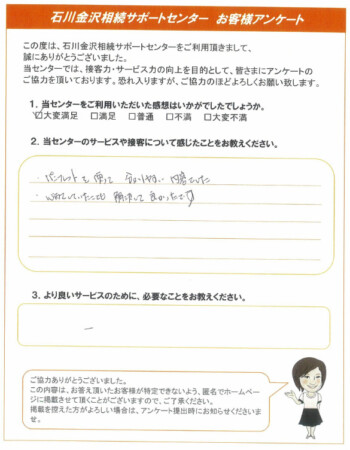 石川金沢相続サポートセンター お客様アンケート
この度は、石川金沢相続サポートセンターをご利用頂きまして、
誠にありがとうございました。
当センターでは、接客力・サービス力の向上を目的として、皆さまにアンケートの
ご協力を頂いております。恐れ入りますが、ご協力のほどよろしくお願い致します。
1．当センターをご利用いただいた感想はいかがでしたでしょうか。
☑大変満足 □満足 □普通 □不満 □大変不満
2．当センターのサービスや接客について感じたことをお教えください。
・パンフレットも使って 分かりやすい 内容でした
・していたことも 解決して良かったです
3．より良いサービスのために、必要なことをお教えください。
ー
ご協力ありがとうございました。
この内容は、お答え頂いたお客様が特定できないよう、匿名でホームペー
ジに掲載させて頂くことがございますので、ご了承ください。
掲載を控えた方がよろしい場合は、アンケート提出時にお知らせくださいま
せ。